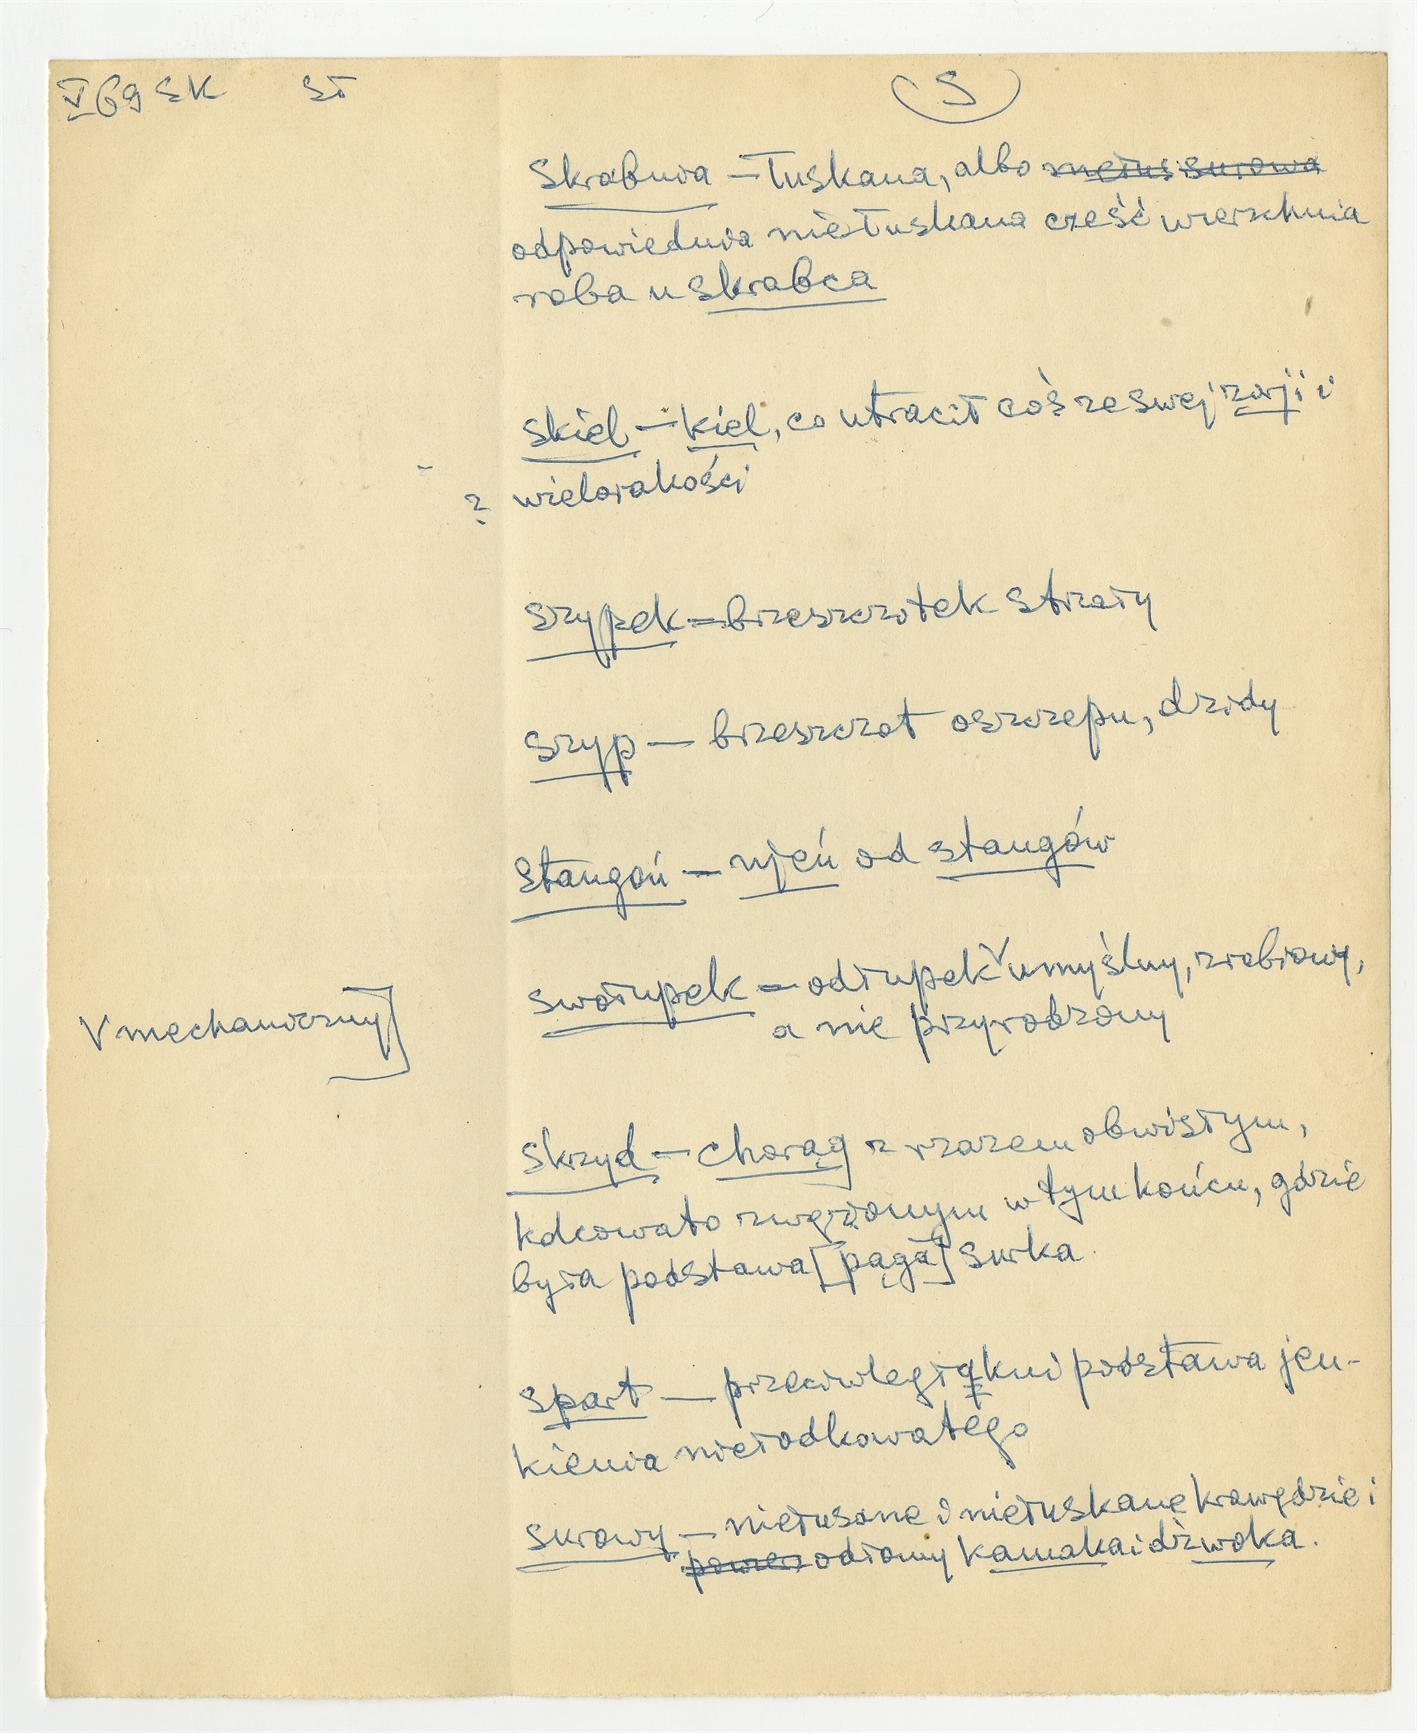 V 69 SK SŁ
S
Skrabnia – łuskana, albo niełus surowa
odpowiednia niełuskana cześć wierzchnia
roba u skrabca
skiel – kiel, co utracił coś ze swej zorji i
? wielorakości
szypek – brzeszczotek strzały
szyp – brzeszczot oszczepu, dzidy
stangoń – njeń od stangów
swołupek – odłupek V umyślny, zrobiony,
a nie przyrodzony
V mechaniczny]
skrzyd – chorąg z rzazem obwisłym,
kłowato zwężonym w tym końcu, gdzie
była podstawa [pąga] surka
spart – przeciwległa kni podstawa jen-
kienia nierodkowatego
surowy – niełusane i niełuskane krawędzie i
powierz odłomy kamaka i dźwoka.